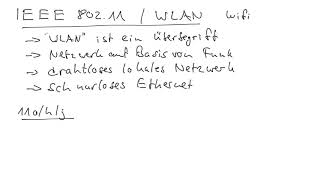 IEEE 802.11 / WLAN Wifi
→ "WLAN" ist ein Überbegriff
→ Netzwerk auf Basis von Funk
→ drahtloses lokales Netzwerk
→ schnurloses Ethernet